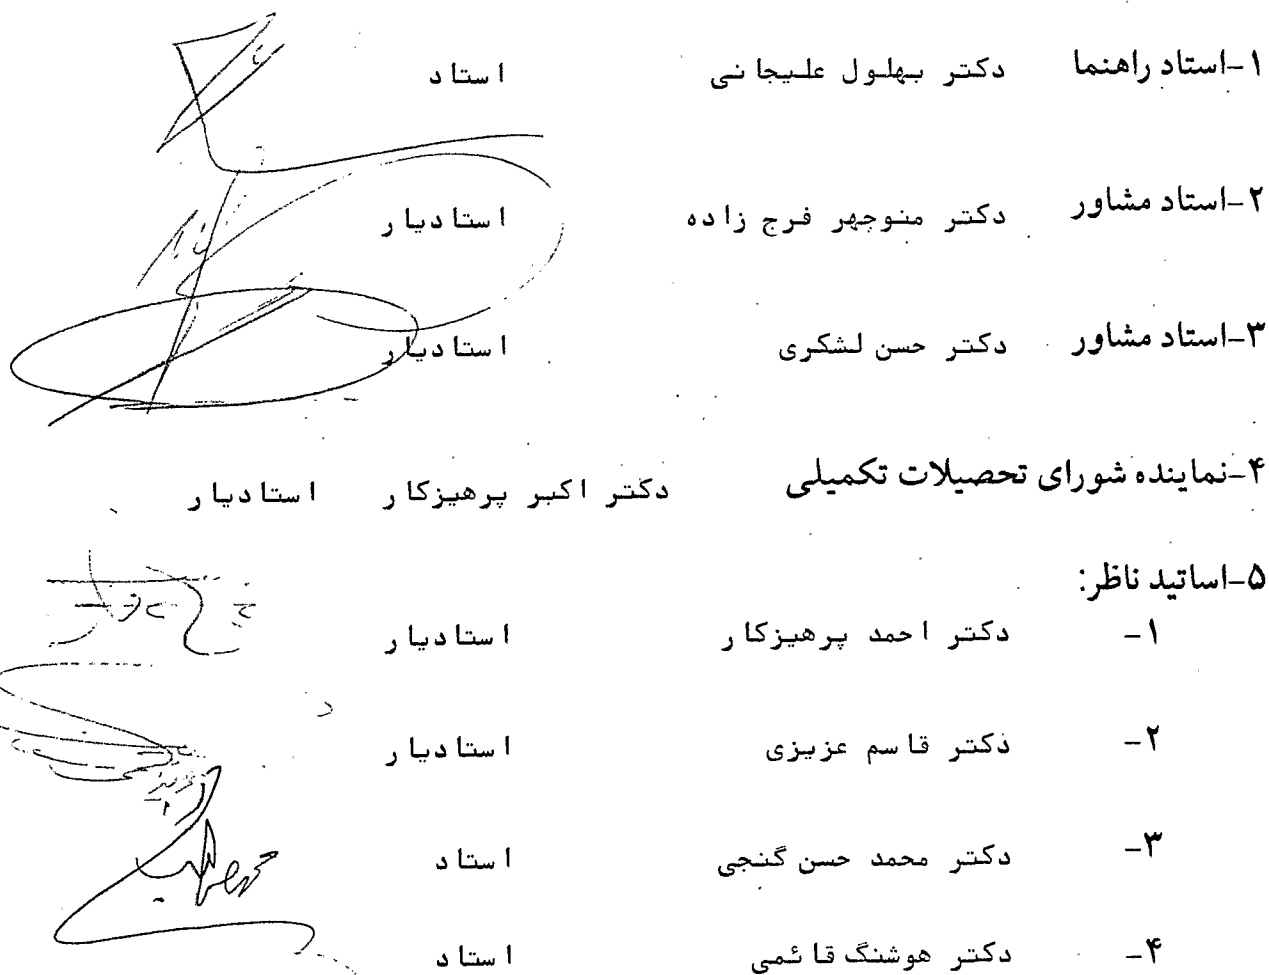 ۱-استاد راهنما دکتر بهلول علیجانی استاد
۲-استاد مشاور دکتر منوچهر فرج زاده استادیار
۳-استاد مشاور دکتر حسن لشکری استادیار
۴-نماینده شورای تحصیلات تکمیلی دکتر اکبر پرهیزکار استادیار
۵-اساتید ناظر:
۱- دکتر احمد پرهیزکار استادیار
۲- دکتر قاسم عزیزی استادیار
۳- دکتر محمد حسن گنجی استاد
۴- دکتر هوشنگ قائمی استاد